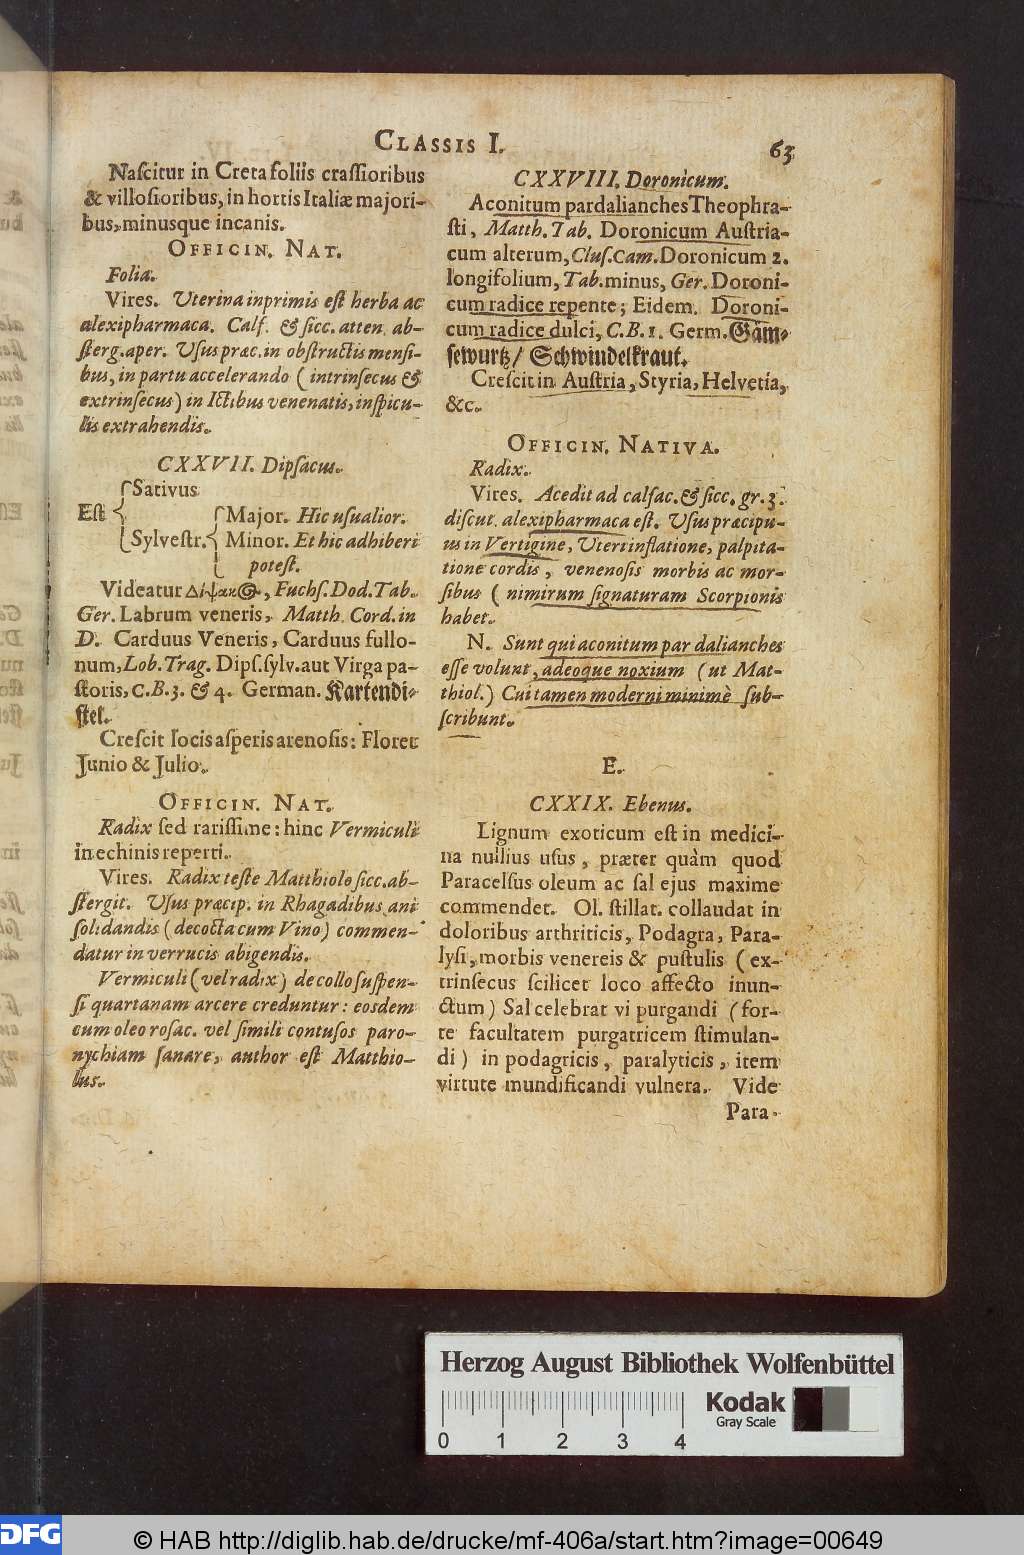 CLASSIS I.
63
Naſcitur in Creta foliis craſſioribus
& villoſioribus, in hortis Italiæ majori-
bus, minusque incanis.
OFFICIN. NAT.
Folia.
Vires. Uterina inprimis eſt herba ac
alexipharmaca. Calf. & ſicc. atten. ab-
ſterg. aper. Uſus præc. in obſtructis menſi-
bus, in partu accelerando (intrinſecus &
extrinſecus) in Ictibus venenatis, inſpicu-
lis extrahendis.
CXXVII. Dipſacus.
Sativus
Eſt
Major. Hic uſualior.
Sylveſtr. Minor. Et hic adhiberi
poteſt.
Videatur Δίψακ@, Fuchſ. Dod. Tab.
Ger. Labrum veneris, Matth. Cord. in
D. Carduus Veneris, Carduus fullo-
num, Lob. Trag. Dipſ. ſylv. aut Virga pa-
ſtoris, C.B. 3. & 4. German. Kartendi-
ſtel.
Creſcit locis aſperis arenoſis: Floret
Junio & Julio.
OFFICIN. NAT.
Radix ſed rariſſime: hinc Vermiculi
in echinis reperti.
Vires. Radix teſte Matthiolo ſicc. ab-
ſtergit. Uſus præcip. in Rhagadibus ani
ſolidandis (decocta cum Vino) commen-
datur in verrucis abigendis.
Vermiculi (vel radix) de collo ſuſpen-
ſi quartanam arcere creduntur: eosdem
cum oleo roſac. vel ſimili contuſos paro-
nychiam ſanare, author eſt Matthio-
lus.
CXXVIII. Doronicum.
Aconitum pardalianches Theophra-
ſti, Matth. Tab. Doronicum Auſtria-
cum alterum, Cluſ. Cam. Doronicum 2.
longifolium, Tab. minus, Ger. Doroni-
cum radice repente; Eidem. Doroni-
cum radice dulci, C.B. 1. Germ. Gäm-
ſewurtz/ Schwindelkraut.
Creſcit in Auſtria, Styria, Helvetia,
&c.
OFFICIN. NATIVA.
Radix.
Vires. Acedit ad calfac. & ſicc. gr. 3.
diſcut. alexipharmaca eſt. Uſus præcipu-
us in Vertigine, Uteri inflatione, palpita-
tione cordis, venenoſis morbis ac mor-
ſibus (nimirum ſignaturam Scorpionis
habet.
N. Sunt qui aconitum pardalianches
eſſe volunt, adeoque noxium (ut Mat-
thiol.) Cui tamen moderni minimè ſub-
ſcribunt.
E.
CXXIX. Ebenus.
Lignum exoticum eſt in medici-
na nullius uſus, præter quàm quod
Paracelſus oleum ac ſal ejus maxime
commendet. Ol. ſtillat. collaudat in
doloribus arthriticis, Podagra, Para-
lyſi, morbis venereis & puſtulis (ex-
trinſecus ſcilicet loco affecto inun-
ctum) Sal celebrat vi purgandi (for-
te facultatem purgatricem ſtimulan-
di) in podagricis, paralyticis, item
virtute mundificandi vulnera. Vide
Para-
Herzog August Bibliothek Wolfenbüttel
Kodak
Gray Scale
0 1 2 3 4
DFG
© HAB http://diglib.hab.de/drucke/mf-406a/start.htm?image=00649